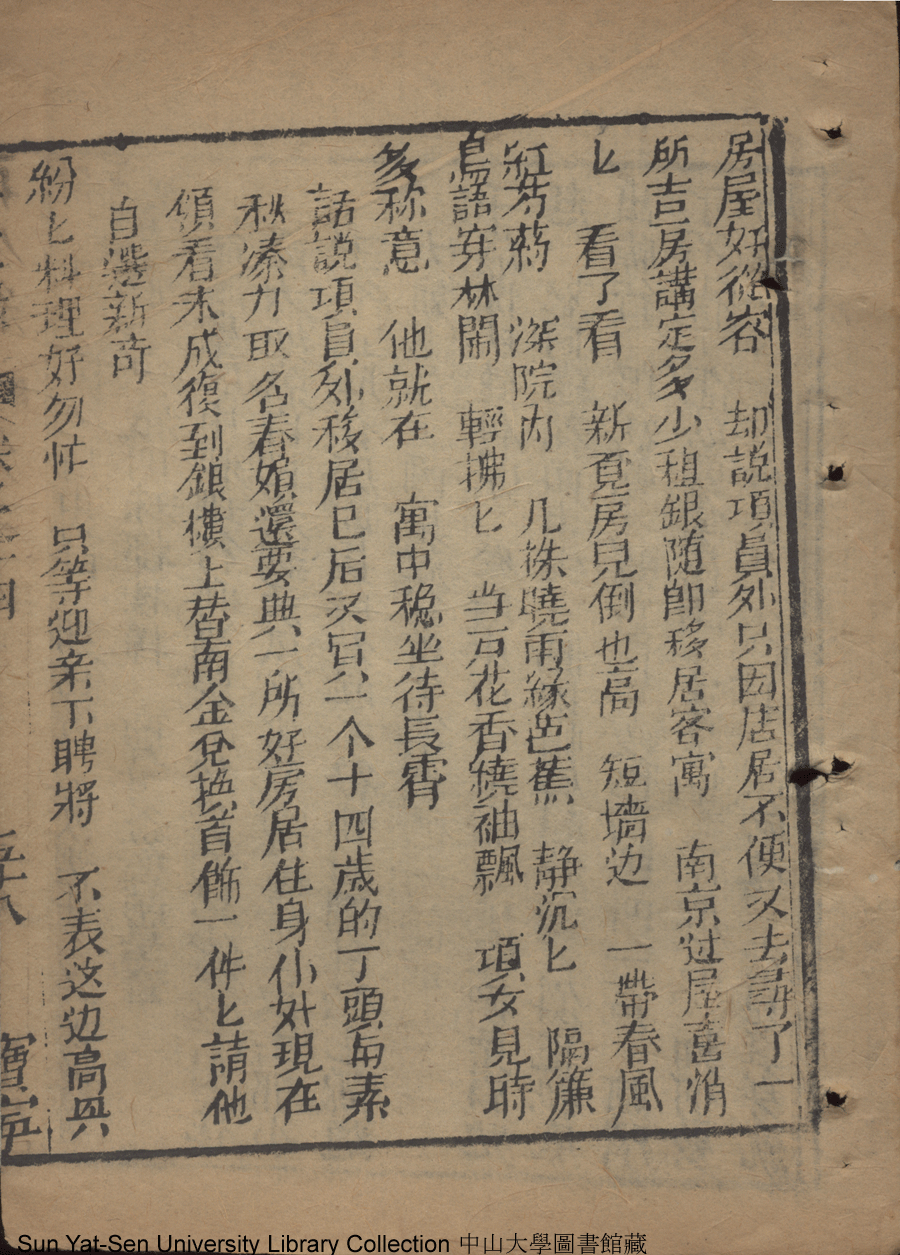 房屋好從容 却說項員外只因店居不便又去尋了一
所吉房講定多少租銀随即移居客寓 南京过屋喜悄
匕 看了看 新覓房児倒也高 短墻边 一帶春風
紅芍葯 深院内 几株曉雨綠芭蕉 静沉匕 隔簾
鳥語穿林鬧 輕拂匕 当户花香繞袖飄 項女見時
多称意 他就在 寓中穏坐待長霄
話說項員外移居已后又買一个十四歲的丁頭身素
秋溱力取名春嬪還要典一所好房居住身仆好現在
傾看未成復到銀樓上替南金兌換首飾一件匕請他
自選新奇
紛匕料理好匆忙 只等迎亲下聘將 不表这边高興
Sun Yat-Sen University Library Collection 中山大學圖書館藏